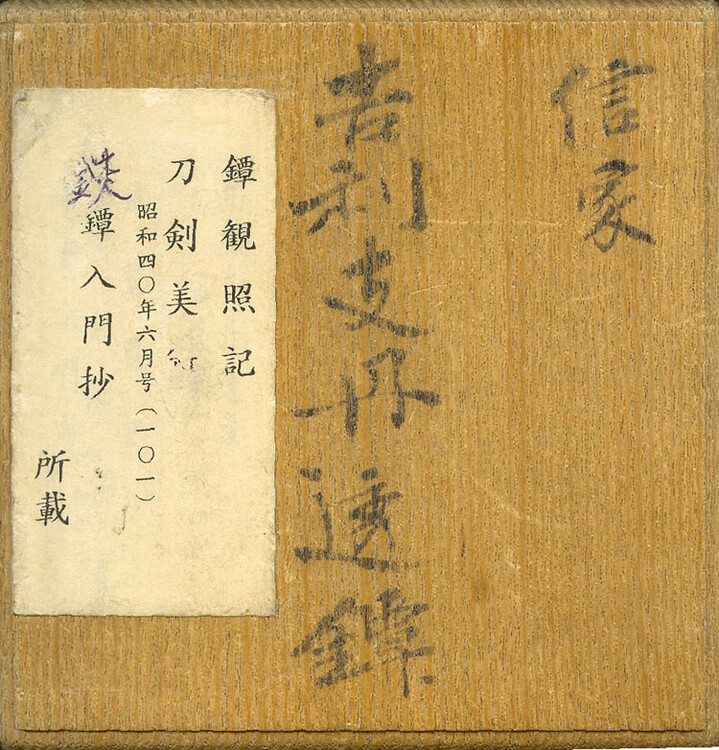 信家
吉利支丹透鐔
鐔観照記
刀剣美
昭和四〇年六月号（一〇一）
鉄鐔入門抄
所載